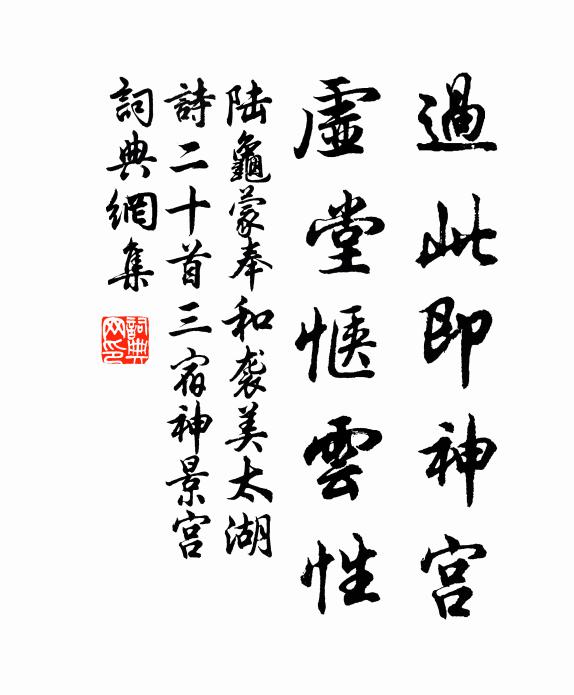 過此即神宮
虛堂愜雲性
陆龜蒙奉和袭美太湖
詩二十首三宿神景宮
詞典網集
詞典网印